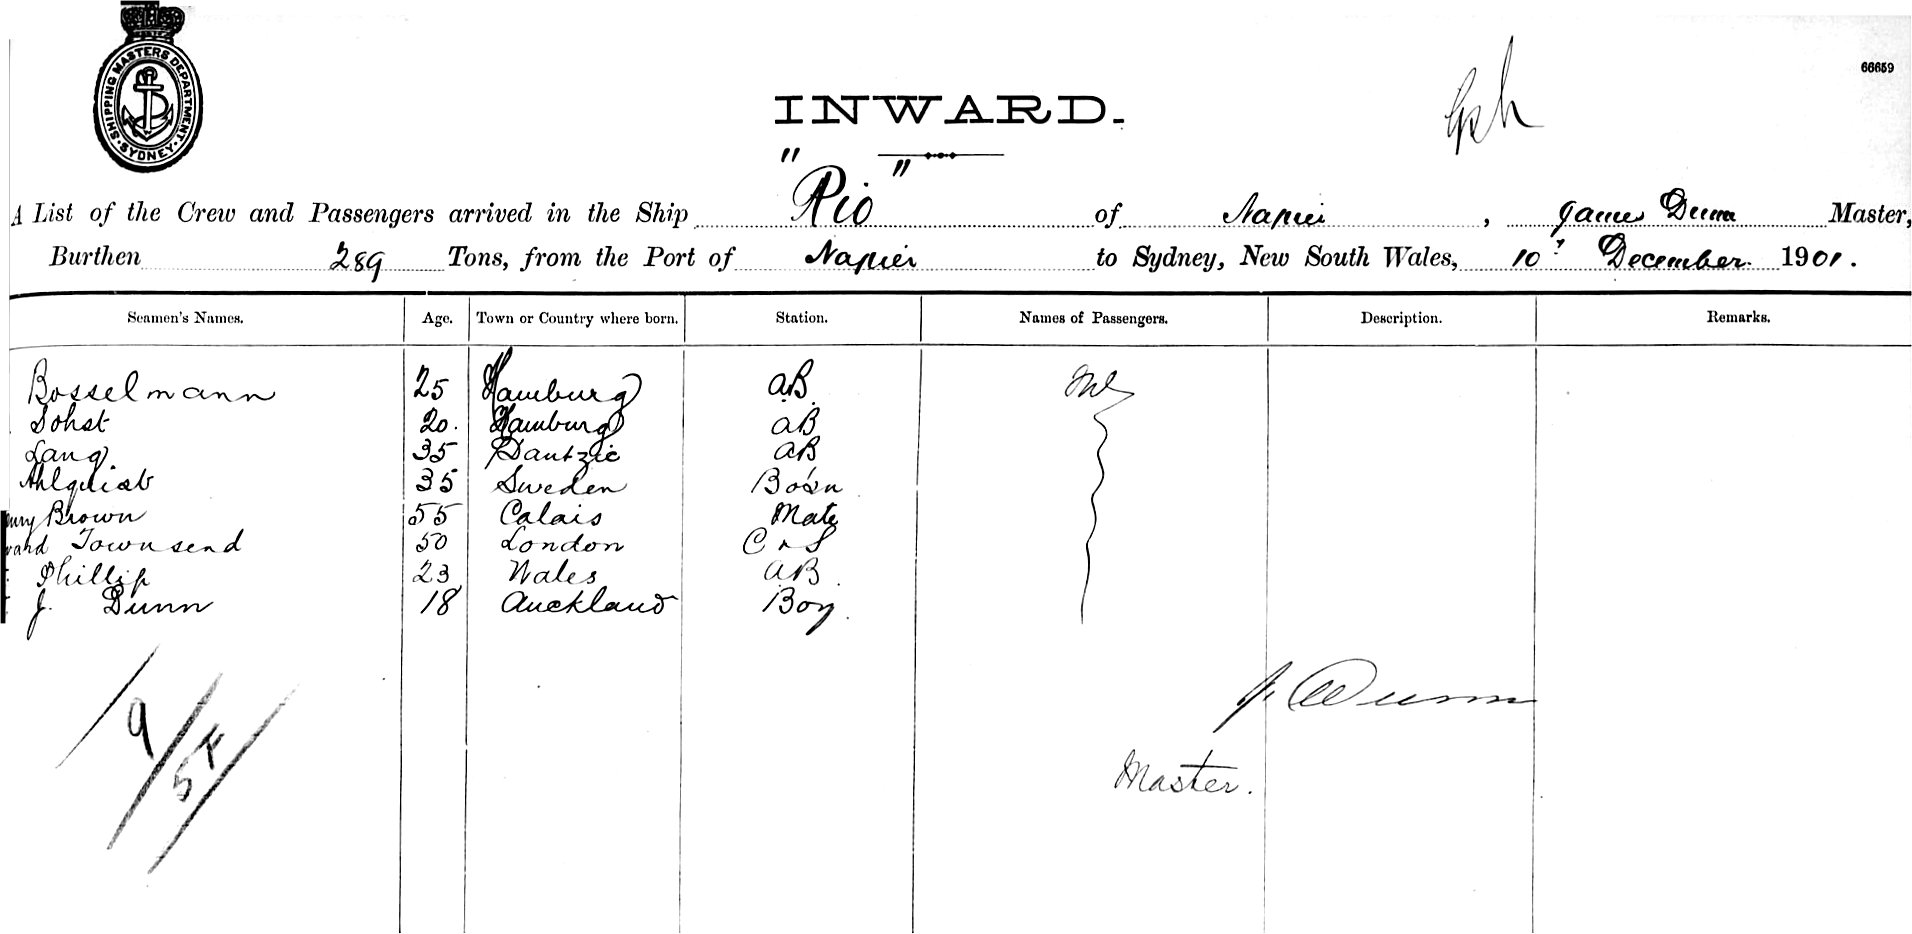 SHIPPING MASTERS DEPARTMENT. SYDNEY.
66659
INWARD.
A List of the Crew and Passengers arrived in the Ship "Rio" of Napier, James Dunn Master,
Burthen 289 Tons, from the Port of Napier to Sydney, New South Wales, 10. December 1901.
Seamen's Names. Age. Town or Country where born. Station. Names of Passengers. Description. Remarks.
Bosselmann 25 Hamburg AB
Sohst 20. Hamburg AB
Lang 35 Dantzic AB
Ahlquist 35 Sweden Bo'sn
Brown 55 Calais Mate
Townsend 50 London C & S
Phillip 23 Wales AB
J. Dunn 18 Auckland Boy
J. Dunn
Master.
9
5F